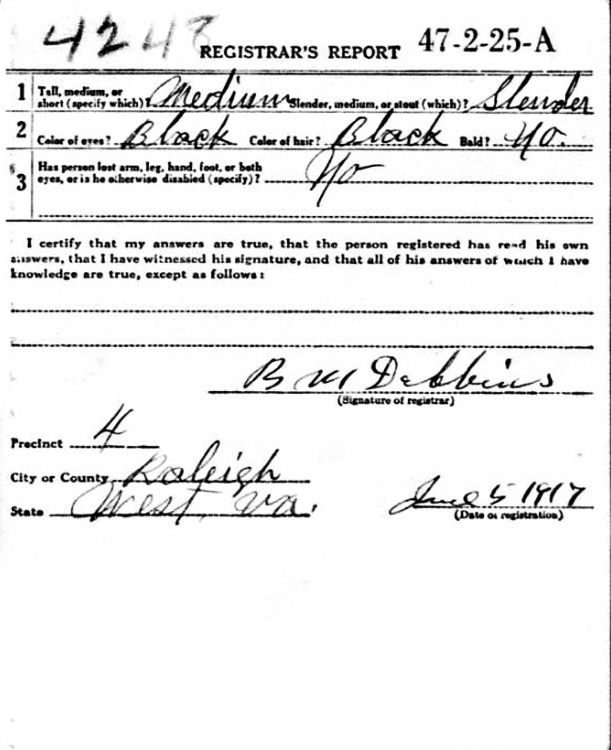 4248
REGISTRAR'S REPORT 47-2-25-A
1 Tall, medium, or
short (specify which)? Medium Slender, medium, or stout (which)? Slender
2 Color of eyes? Black Color of hair? Black Bald? No.
3 Has person lost arm, leg, hand, foot, or both
eyes, or is he otherwise disabled (specify)? No
I certify that my answers are true, that the person registered has read his own
answers, that I have witnessed his signature, and that all of his answers of which I have
knowledge are true, except as follows:
B M Debbins
(Signature of registrar)
Precinct 4
City or County Raleigh
State West Va. June 5 1917
(Date of registration)